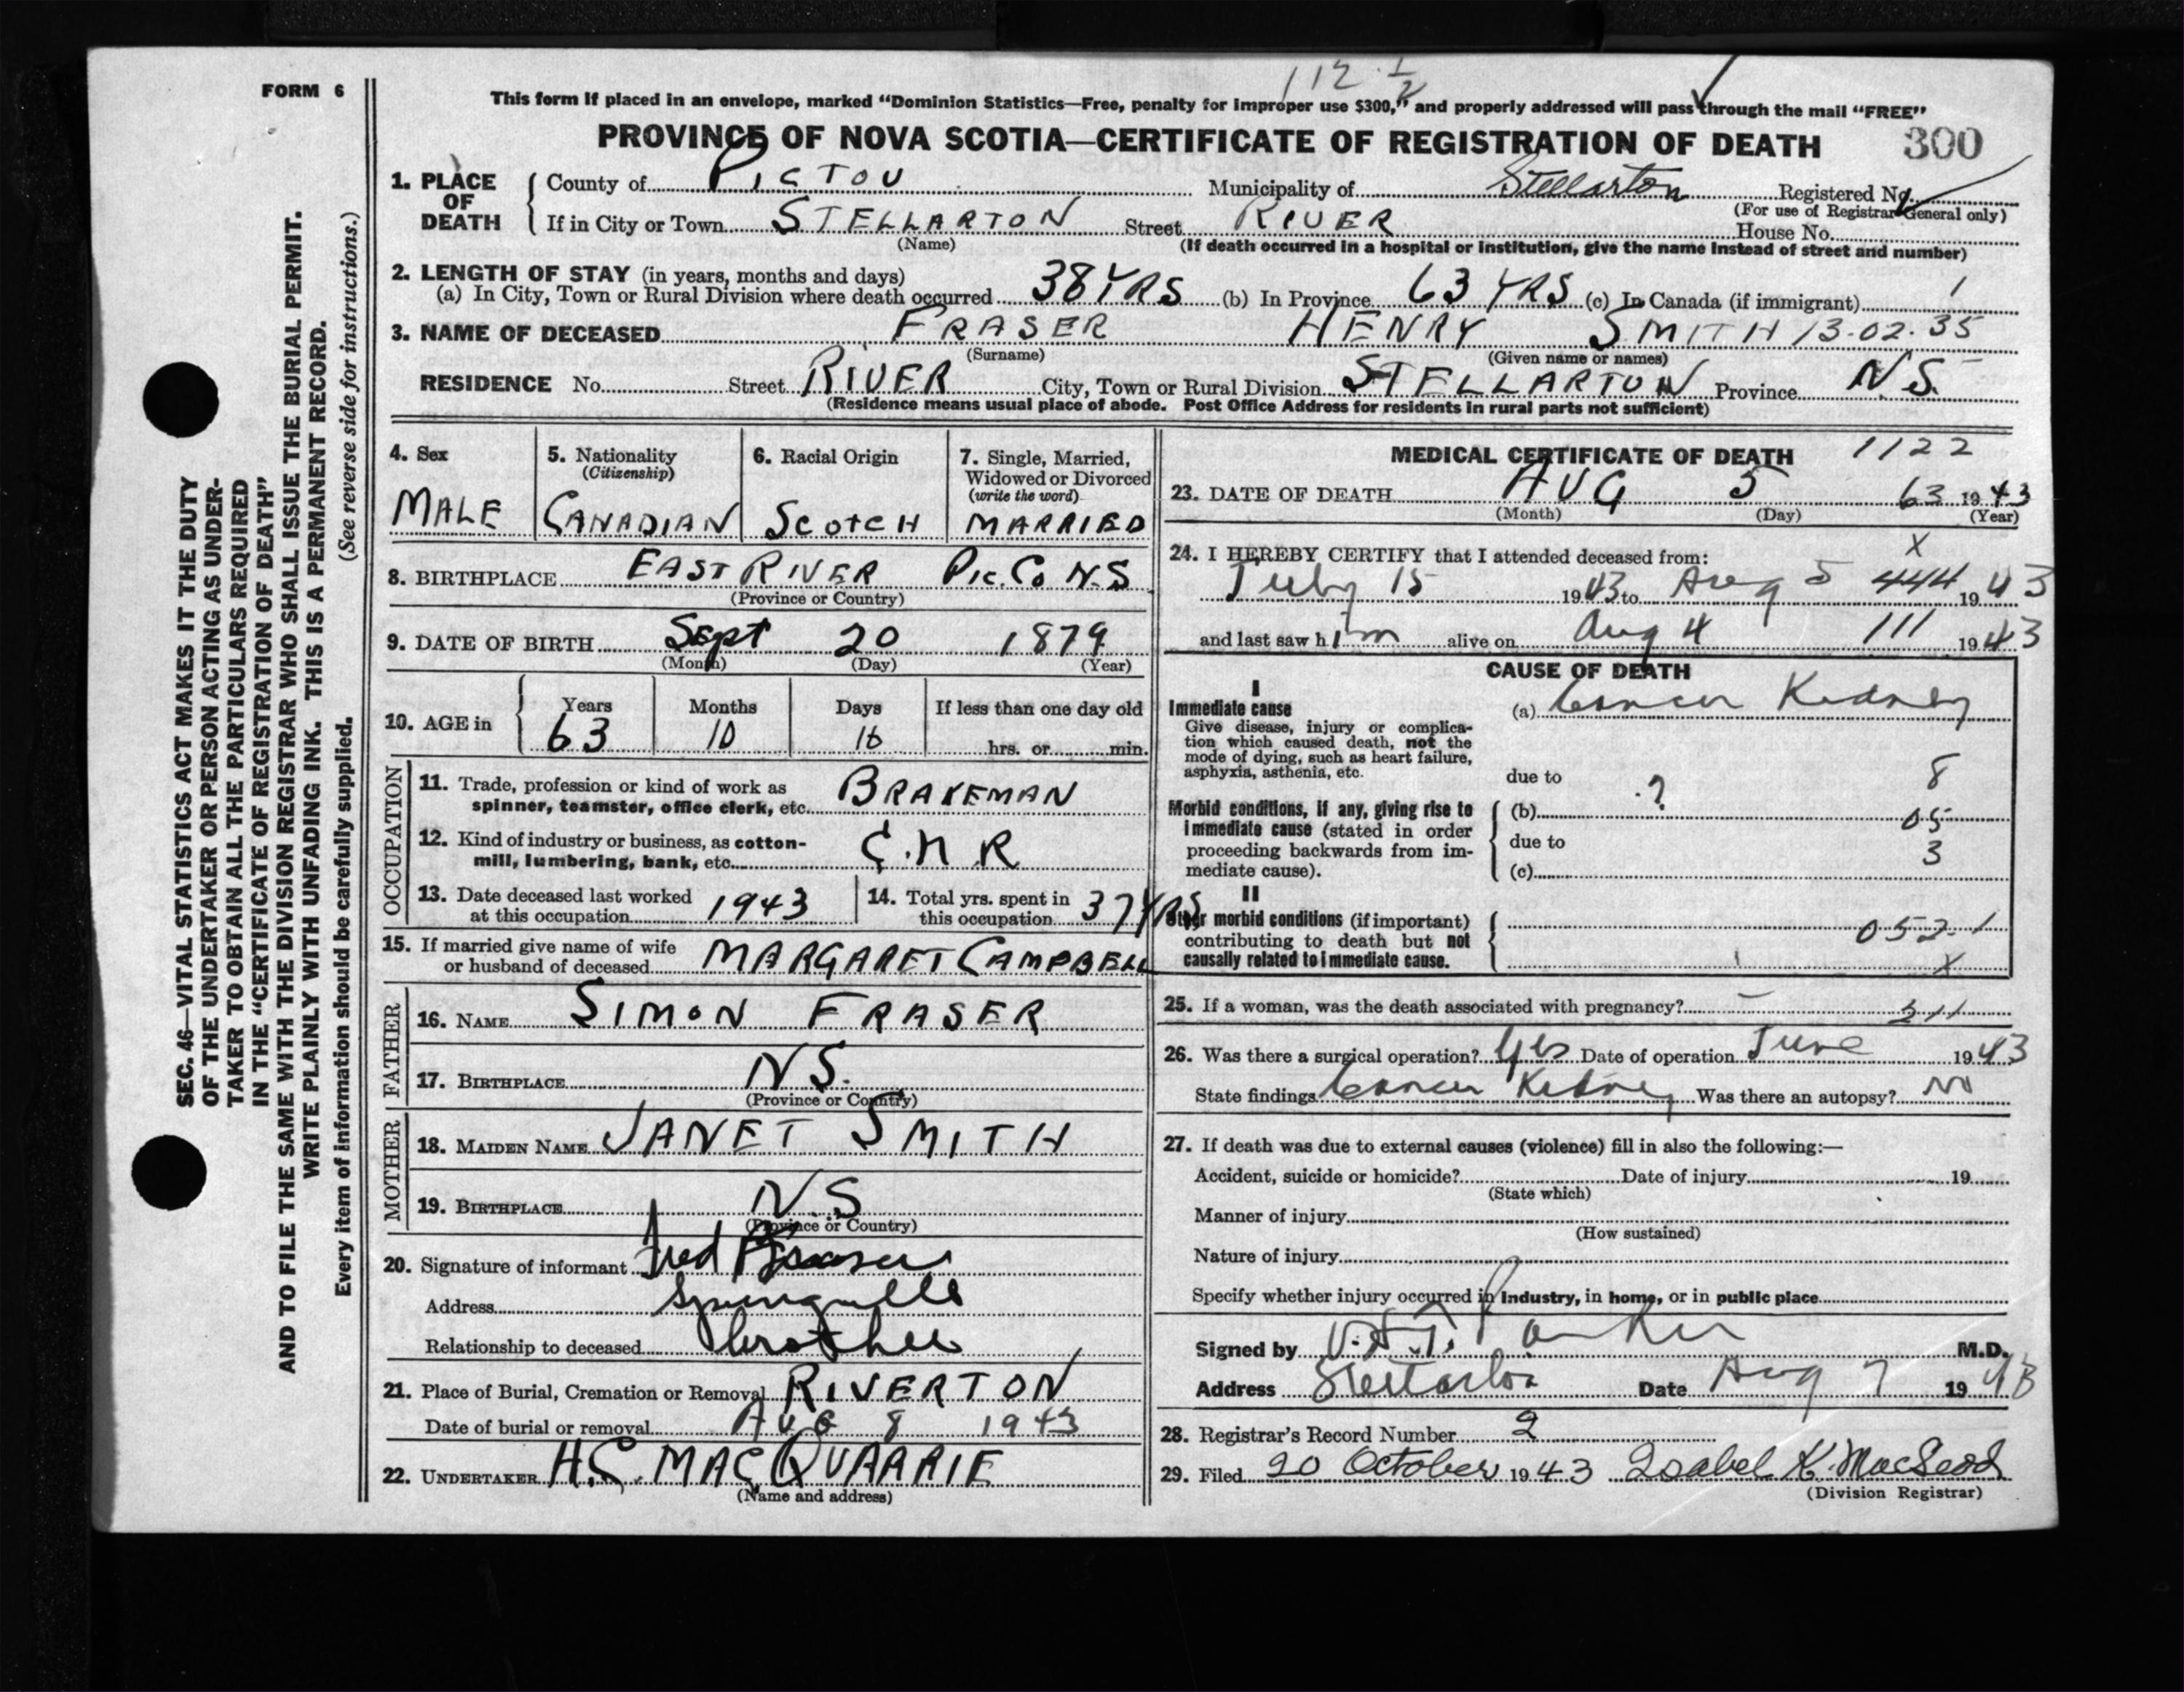 112 1/2
FORM 6
This form if placed in an envelope, marked “Dominion Statistics—Free, penalty for improper use $300,” and properly addressed will pass through the mail “FREE”
PROVINCE OF NOVA SCOTIA—CERTIFICATE OF REGISTRATION OF DEATH 300
1. PLACE OF DEATH County of PICTOU Municipality of Stellarton Registered No.
(For use of Registrar General only)
If in City or Town STELLARTON Street RIVER House No.
(Name) (If death occurred in a hospital or institution, give the name instead of street and number)
2. LENGTH OF STAY (in years, months and days)
(a) In City, Town or Rural Division where death occurred 38 YRS (b) In Province 63 YRS (c) In Canada (if immigrant) 1
3. NAME OF DECEASED FRASER HENRY SMITH 13-02-35
(Surname) (Given name or names)
RESIDENCE No. Street RIVER City, Town or Rural Division STELLARTON Province N.S.
(Residence means usual place of abode. Post Office Address for residents in rural parts not sufficient)
4. Sex
MALE
5. Nationality
(Citizenship)
CANADIAN
6. Racial Origin
SCOTCH
7. Single, Married,
Widowed or Divorced
(write the word)
MARRIED
8. BIRTHPLACE EAST RIVER PIC. CO N.S
(Province or Country)
9. DATE OF BIRTH Sept 20 1879
(Month) (Day) (Year)
10. AGE in
Years Months Days If less than one day old
63 10 16 hrs. or min.
OCCUPATION
11. Trade, profession or kind of work as
spinner, teamster, office clerk, etc. BRAKEMAN
12. Kind of industry or business, as cotton-
mill, lumbering, bank, etc. C.N.R
13. Date deceased last worked
at this occupation 1943
14. Total yrs. spent in
this occupation 37 YRS
15. If married give name of wife
or husband of deceased MARGARET CAMPBELL
FATHER
16. NAME SIMON FRASER
17. BIRTHPLACE N.S.
(Province or Country)
MOTHER
18. MAIDEN NAME JANET SMITH
19. BIRTHPLACE N.S
(Province or Country)
20. Signature of informant Fred Fraser
Address Springville
Relationship to deceased brother
21. Place of Burial, Cremation or Removal RIVERTON
Date of burial or removal AUG 8 1943
22. UNDERTAKER H.C. MACQUARRIE
(Name and address)
MEDICAL CERTIFICATE OF DEATH 1122
23. DATE OF DEATH AUG 5 63 1943
(Month) (Day) (Year)
24. I HEREBY CERTIFY that I attended deceased from: X
July 15 1943 to Aug 5 444 1943
and last saw him alive on Aug 4 111 1943
CAUSE OF DEATH
I
Immediate cause
Give disease, injury or complica-
tion which caused death, not the
mode of dying, such as heart failure,
asphyxia, asthenia, etc.
(a) Cancer Kidney
due to 8
Morbid conditions, if any, giving rise to
immediate cause (stated in order
proceeding backwards from im-
mediate cause).
(b) ? 05
due to 3
(c)
II
Other morbid conditions (if important)
contributing to death but not
causally related to immediate cause.
052-1
X
25. If a woman, was the death associated with pregnancy? – 211
26. Was there a surgical operation? Yes Date of operation June 1943
State findings Cancer Kidney Was there an autopsy? No
27. If death was due to external causes (violence) fill in also the following:—
Accident, suicide or homicide? Date of injury 19
(State which)
Manner of injury
(How sustained)
Nature of injury
Specify whether injury occurred in industry, in home, or in public place
Signed by Parker M.D.
Address Stellarton Date Aug 7 1943
28. Registrar's Record Number 2
29. Filed 20 October 1943 Isabel K. MacLeod
(Division Registrar)
SEC. 46—VITAL STATISTICS ACT MAKES IT THE DUTY
OF THE UNDERTAKER OR PERSON ACTING AS UNDER-
TAKER TO OBTAIN ALL THE PARTICULARS REQUIRED
IN THE “CERTIFICATE OF REGISTRATION OF DEATH”
AND TO FILE THE SAME WITH THE DIVISION REGISTRAR WHO SHALL ISSUE THE BURIAL PERMIT.
WRITE PLAINLY WITH UNFADING INK. THIS IS A PERMANENT RECORD.
Every item of information should be carefully supplied. (See reverse side for instructions.)